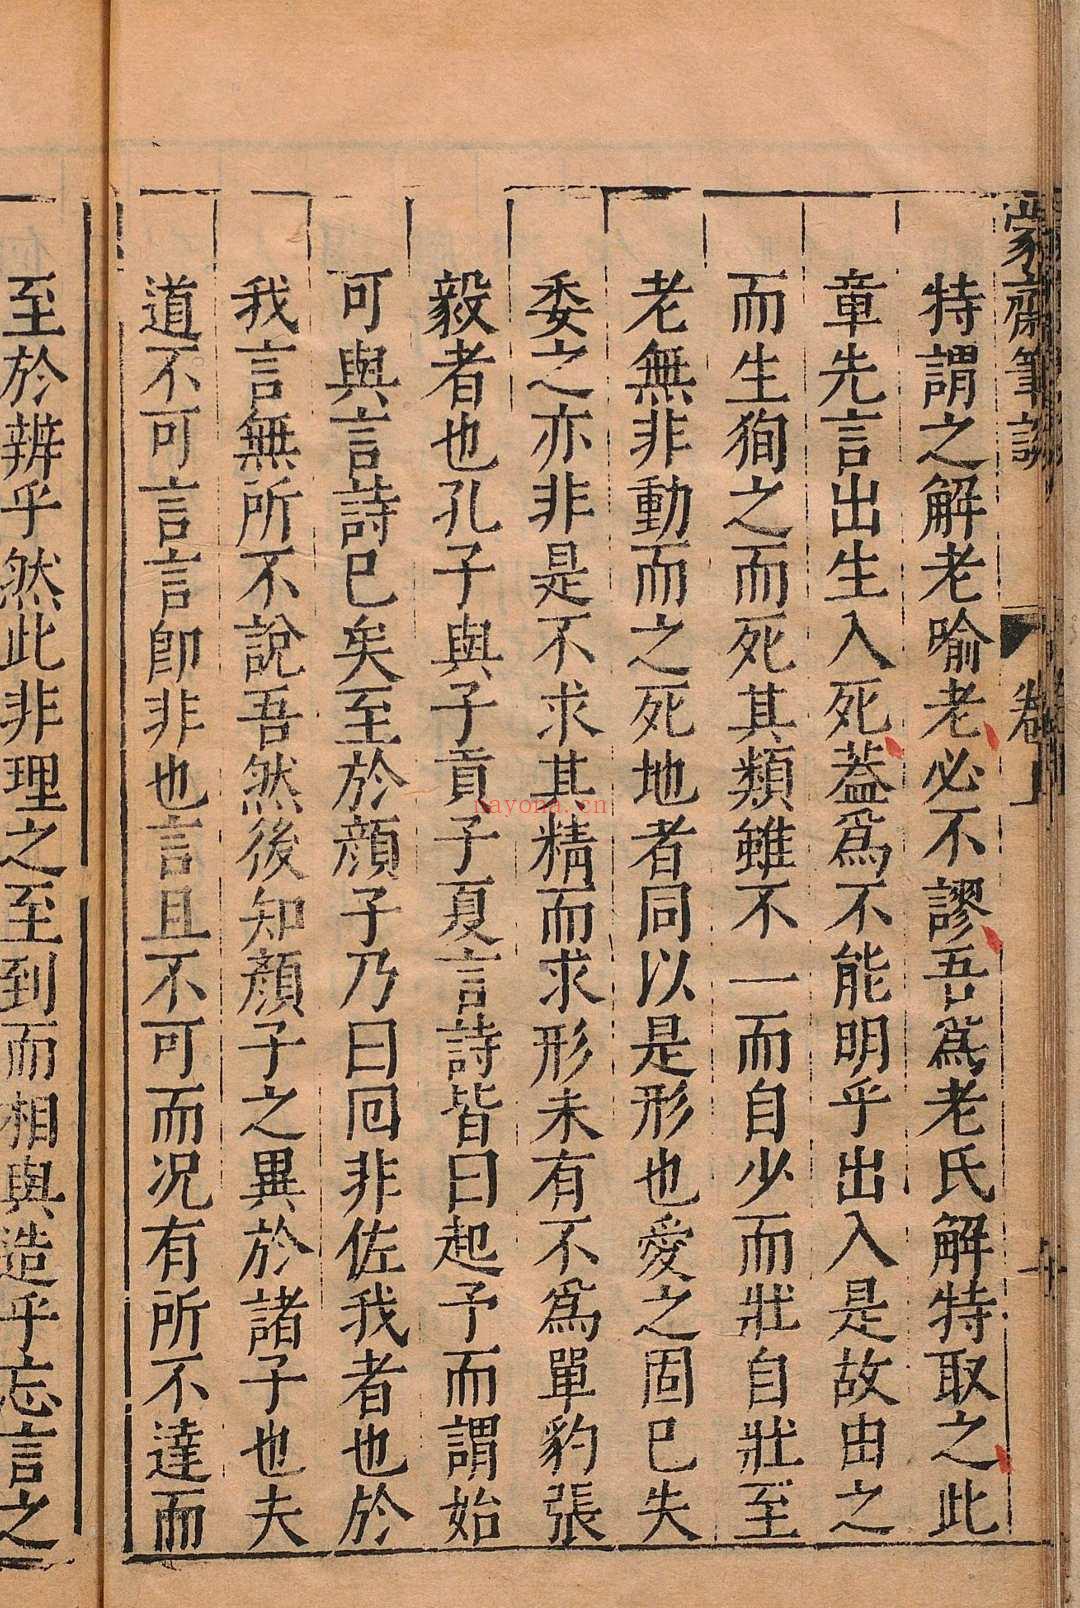 蒙齋筆談
卷上
特謂之解老喻老必不謬吾爲老氏解特取之此
章先言出生入死蓋爲不能明乎出入是故由之
而生狥之而死其類雖不一而自少而壯自壯至
老無非動而之死地者同以是形也愛之固已失
委之亦非是不求其精而求形未有不爲單豹張
毅者也孔子與子貢子夏言詩皆曰起予而謂始
可與言詩已矣至於顔子乃曰回非佐我者也於
我言無所不說吾然後知顔子之異於諸子也夫
道不可言言卽非也言且不可而况有所不達而
至於辨乎然此非理之至到而相與造乎忘言之
nayona.cn